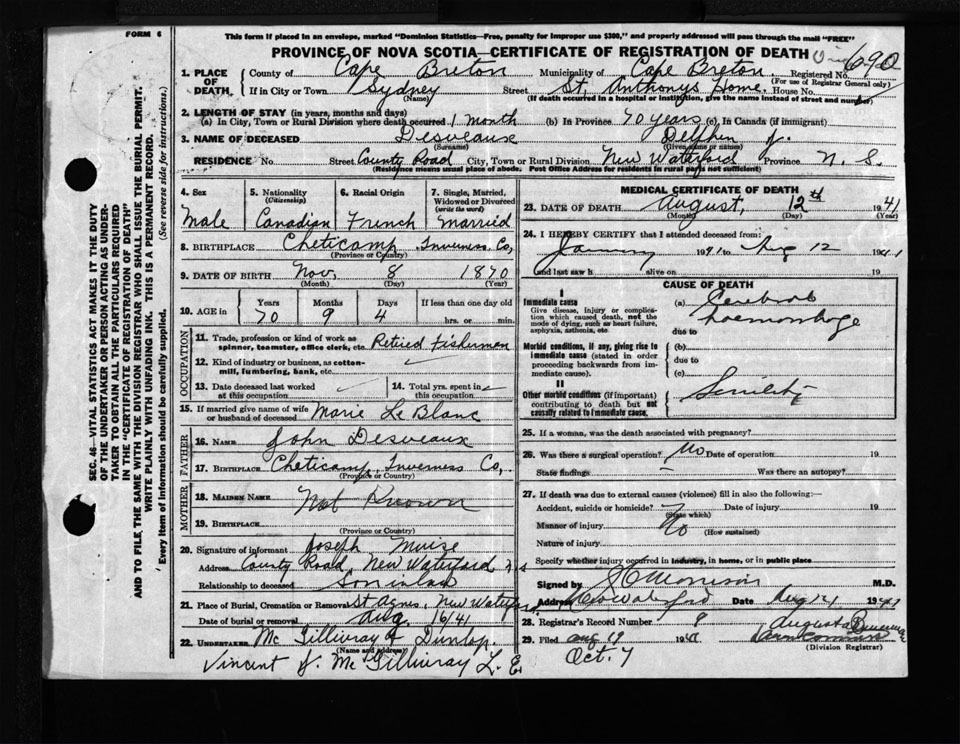 FORM 6
This form if placed in an envelope, marked "Dominion Statistics—Free, penalty for improper use $300," and properly addressed will pass through the mail "FREE"
PROVINCE OF NOVA SCOTIA—CERTIFICATE OF REGISTRATION OF DEATH
1. PLACE OF DEATH. County of Cape Breton Municipality of Cape Breton Registered No. 690
(For use of Registrar General only)
If in City or Town Sydney (Name) Street St. Anthonys Home House No.
(If death occurred in a hospital or institution, give the name instead of street and number)
2. LENGTH OF STAY (in years, months and days)
(a) In City, Town or Rural Division where death occurred 1 month (b) In Province 70 years (c) In Canada (if immigrant)
3. NAME OF DECEASED Desveaux Delphin J.
(Surname) (Given name or names)
RESIDENCE No. Street County Road City, Town or Rural Division New Waterford Province N. S.
(Residence means usual place of abode. Post Office Address for residents in rural parts not sufficient)
4. Sex Male
5. Nationality (Citizenship) Canadian
6. Racial Origin French
7. Single, Married, Widowed or Divorced (write the word) Married
8. BIRTHPLACE Cheticamp Inverness Co,
(Province or Country)
9. DATE OF BIRTH Nov, 8 1870
(Month) (Day) (Year)
10. AGE in Years 70 Months 9 Days 4 If less than one day old hrs. or min.
OCCUPATION
11. Trade, profession or kind of work as spinner, teamster, office clerk, etc. Retired Fisherman
12. Kind of industry or business, as cotton-mill, lumbering, bank, etc.
13. Date deceased last worked at this occupation
14. Total yrs. spent in this occupation
15. If married give name of wife or husband of deceased Marie Le Blanc
FATHER
16. NAME John Desveaux
17. BIRTHPLACE Cheticamp, Inverness Co,
MOTHER
18. MAIDEN NAME Not Known
19. BIRTHPLACE
(Province or Country)
20. Signature of informant Joseph Muise
Address County Road, New Waterford N S
Relationship to deceased Son in law
21. Place of Burial, Cremation or Removal St Agnes, New Waterford
Date of burial or removal Aug. 16/41
22. UNDERTAKER Mc Gillivray & Dunlop.
(Name and address)
Vincent J. Mc Gillivray L. E.
MEDICAL CERTIFICATE OF DEATH
23. DATE OF DEATH August, 12th 1941
(Month) (Day) (Year)
24. I HEREBY CERTIFY that I attended deceased from:
January 1941 to Aug 12 1941
and last saw h alive on 19
CAUSE OF DEATH
I
Immediate cause
Give disease, injury or complication which caused death, not the mode of dying, such as heart failure, asphyxia, asthenia, etc.
(a) Cerebral haemorrhage
due to
Morbid conditions, if any, giving rise to immediate cause (stated in order proceeding backwards from immediate cause).
(b)
due to
(c)
II
Other morbid conditions (if important) contributing to death but not causally related to immediate cause.
Senility
25. If a woman, was the death associated with pregnancy?
26. Was there a surgical operation? No Date of operation 19
State findings Was there an autopsy?
27. If death was due to external causes (violence) fill in also the following:—
Accident, suicide or homicide? No Date of injury 19
(State which)
Manner of injury
(How sustained)
Nature of injury
Specify whether injury occurred in industry, in home, or in public place
Signed by M.D.
Address New Waterford Date Aug 12 1941
28. Registrar's Record Number 8
29. Filed Aug 19 1941
(Division Registrar)
Oct. 7
SEC. 46—VITAL STATISTICS ACT MAKES IT THE DUTY
OF THE UNDERTAKER OR PERSON ACTING AS UNDERTAKER TO OBTAIN ALL THE PARTICULARS REQUIRED
IN THE "CERTIFICATE OF REGISTRATION OF DEATH"
AND TO FILE THE SAME WITH THE DIVISION REGISTRAR WHO SHALL ISSUE THE BURIAL PERMIT.
WRITE PLAINLY WITH UNFADING INK. THIS IS A PERMANENT RECORD.
Every item of Information should be carefully supplied. (See reverse side for instructions.)